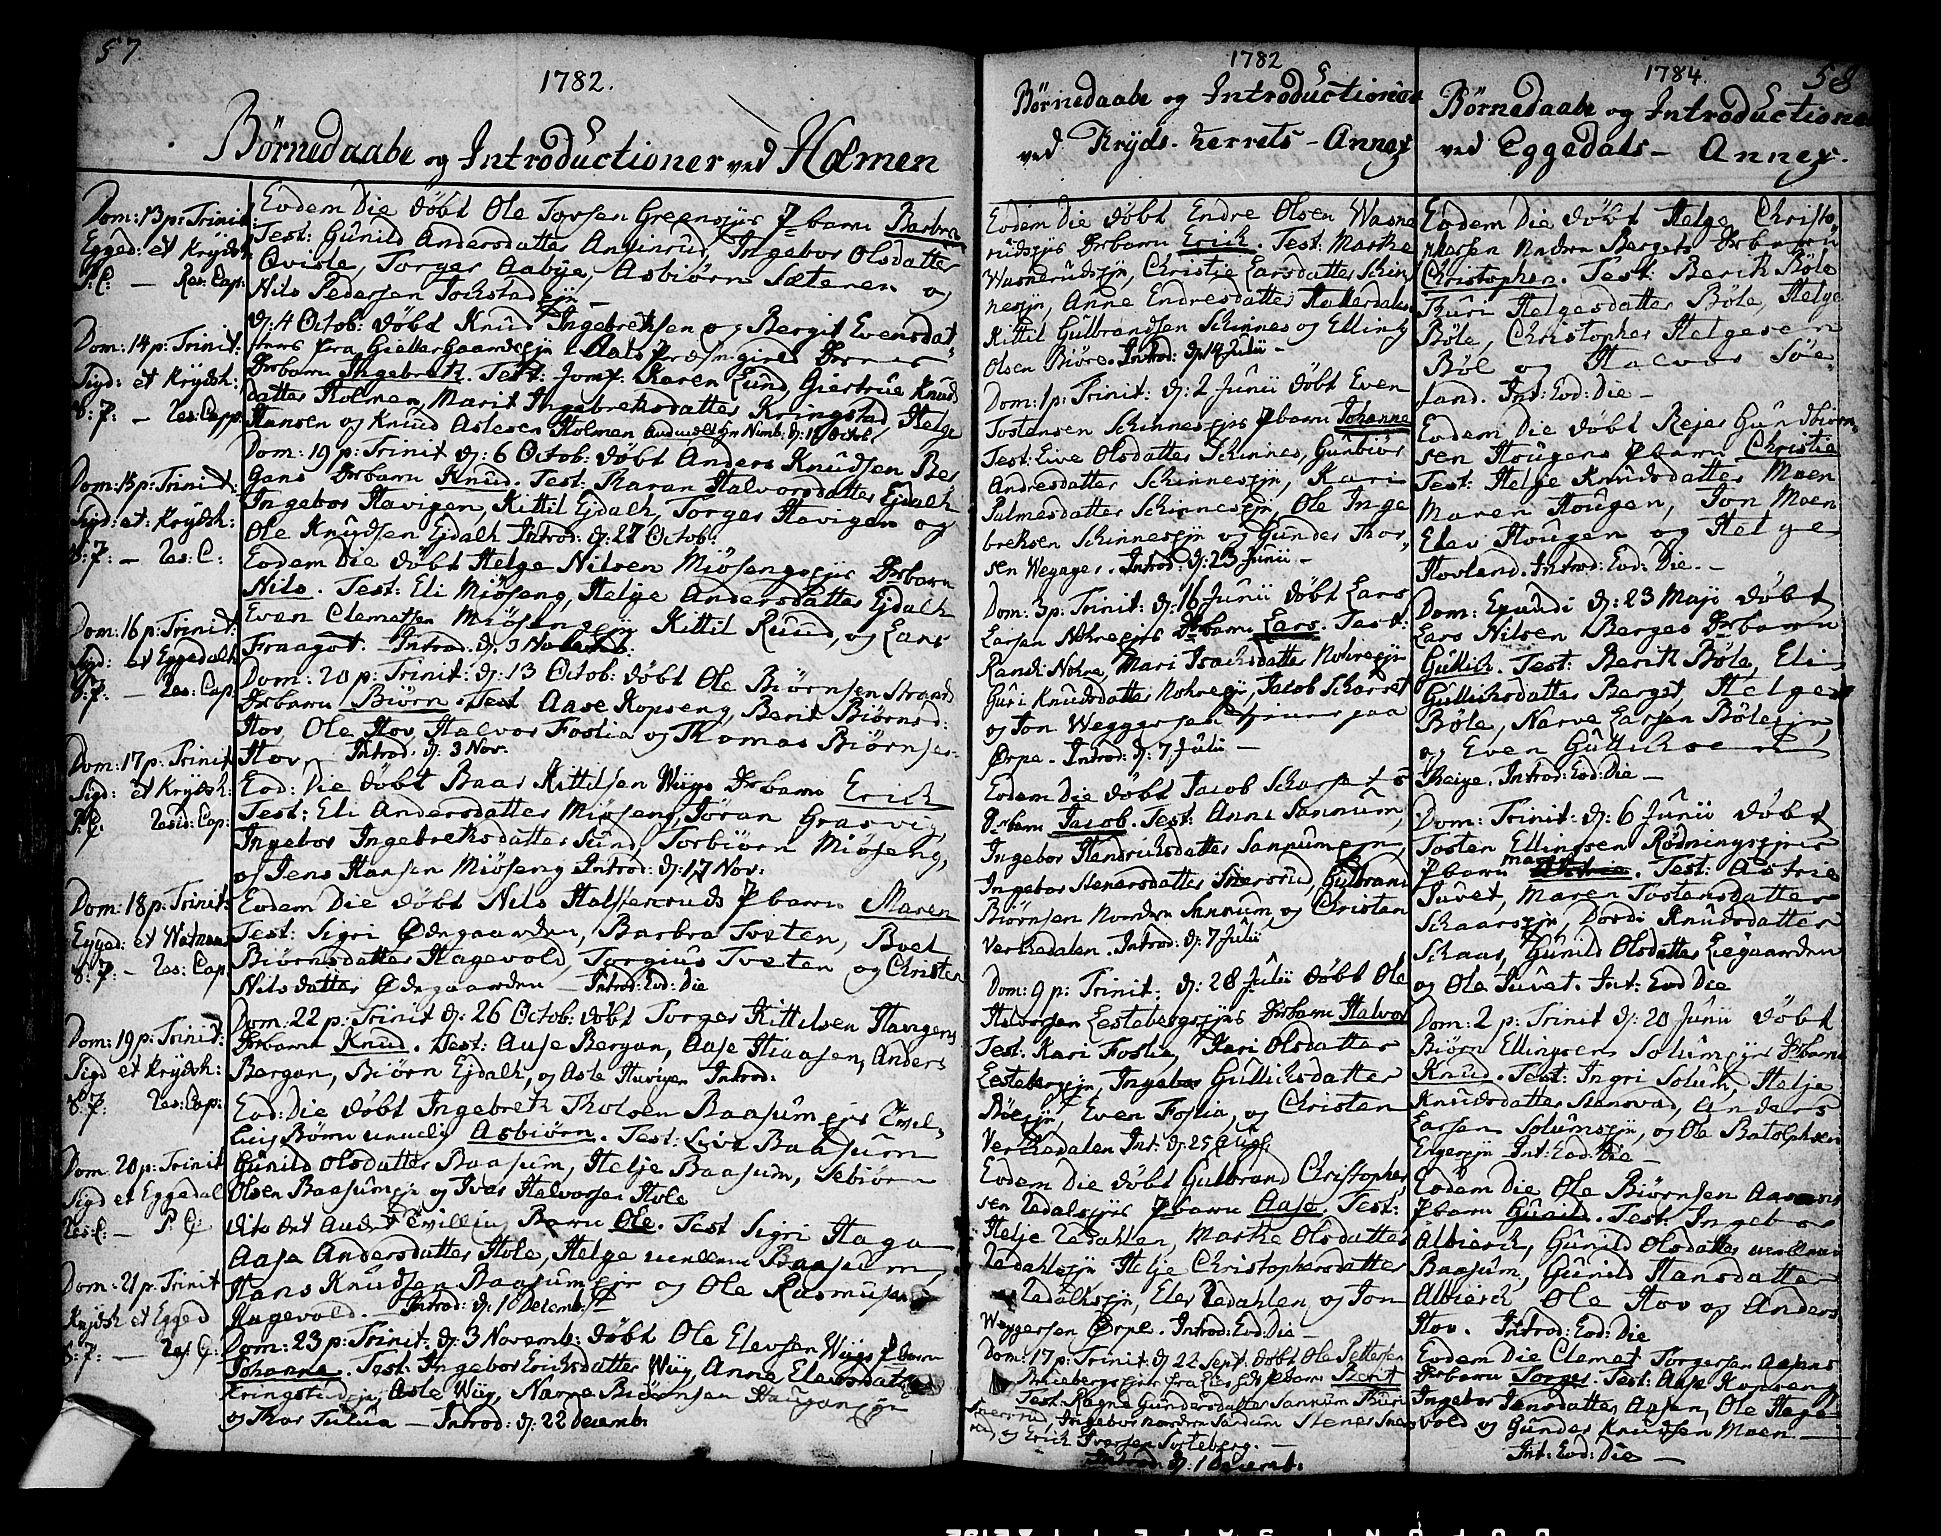 57.
1782.
Börnedaabe og Introductioner ved Holmen
Dom: 13 p: Trinit:
Egged: et Krydsh
P: C: — Res: Cap:
Dom: 14 p: Trinit:
Sigd: et Krydsh:
S: T: — Res: Capp:
Dom: 15 p: Trinit:
Sigd: et: Krydsh:
S: T: — Res: C:
Dom: 16 p: Trinit:
Sigd: et Eggedalh
S: T: — Res: Cap:
Dom: 17 p: Trinit
Sigd: et Krydsh:
P: C. Resid: Cap:
Dom: 18 p: Trinit:
Egged: et
S: T: — Res: Cap
Dom: 19 p: Trinit:
Sigd et Krydsh:
S: T: Res: Cap:
Dom: 20 p: Trinit
Sigd et Eggedal
Res: C: — P. C:
Dom: 21 p: Trinit
Krydsh et Egged
S: T: — Res: C:
Eodem Die döbt Ole Torsen Greensejes P barn Barbra
Test: Gunild Andersdatter Anfinrud, Ingebor Olsdatter
Avisle, Torger Aabye, Asbiörn Sæteren og
Nils Pedersen Tockstadejn —
d: 4 Octob: döbt Knud Ingebretsen og Bergit Evensdat-
ters fra Aals Præstegield
Drbarn Ingebret. Test: Jomf. Karen Lund, Giertrue Knud
datter Holmen, Marit Ingebreksdatter Kringstad, Helge
Hansen og Knud Aslesen Holmen
Dom: 19 p: Trinit d: 6 Octob: döbt Anders Knudsen Ber
gans Drbarn Knud. Test: Karan Halvorsdatter Ejdalh
Ingebor Havigen, Kittil Ejdalh, Torger Havigen og
Ole Knudsen Ejdalh Introd: d: 27 Octob:
Eodem Die döbt Helge Nilsen Miösengsejes Drbarn
Nils. Test: Eli Miöseng, Helge Andersdatter Ejdalh
Even Clemetsen Miösengejn Kittil Ruud, og Lars
Fraagot. Introd: d: 3 Novemb:
Dom: 20 p: Trinit: d: 13 Octob: döbt Ole Biörnsen Strand
Drbarn Biörn Test Aase Kopseng, Berit Biörnsd:
Hov, Ole Hov, Halvor Foslia og Thomas Biörnsen
Hov — Introd. d: 3 Nov:
Eod: Die döbt Baar Kittilsen Wiigs Drbarn Erich
Test: Eli Andersdatter Miöseng, Jöran Grasvig,
Ingebor Ingebreksdatter Lund, Torbiörn Miöseng,
og Jens Hansen Miöseng Introd: d: 17 Nov:
Eodem Die döbt Nils Halstenruds P barn Maren
Test: Sigri Ödegaarden, Barbra Tveten, Boel
Biörnsdatter Hagevold, Torgius Tveten og Christen
Nilsdatter Ödegaarden — Introd: Eod: Die
Dom: 22 p: Trinit d: 26 Octob: döbt Torger Kittilsen Havigens
Drbarn Knud. Test: Aase Bergan, Aase Hiaasen, Anders
Bergan, Biörn Ejdalh, og Asle Havigen Introd:
Eod: Die döbt Ingebreth Tholsen Baasumejes Tvil-
ling Börn Asbiörn. Test: Live Baasum
Gunild Olsdatter Baasum, Helje Baasum, Sebiörn
Olsen Baasumejn og Iver Halvorsen Hole
dito det andet Tvilling Barn Ole. Test Sigri Haga
Aase Andersdatter Hole, Helge Baasum,
Hans Knudsen Baasumejn og Ole Rasmusen
Hagevold. — Introd: d: 1 Decemb:
Dom: 23 p: Trinit: d: 3 Novemb: döbt Ole Elevsen Wiigs P barn
Johanne. Test: Ingebor Ericksdatter Wiig, Anne Elevsdatter
Kringstadejn, Asle Wiig, Narve Biörnsen Haugan
og Thor Tulua — Introd: d: 22 Decemb:
1782
Börnedaabe og Introductioner
ved Kryds-herrets-Annex
Eodem Die döbt Endre Olsen Wasne
rudsejes Drbarn Erick. Test: Marthe
Wasnerudsejn, Christje Larsdatter Schin
nesejn, Anne Endresdatter
Kittil Gulbrandsen Schinnes og Elling
Olsen Biöre. Introd: d: 14 Julii —
Dom: 1 p: Trinit: d: 2 Junii döbt Even
Tostensen Schinnesejes P barn Johanne
Test: Live Olsdatter Schinnes, Gunbiör
Andresdatter Schinnesejn, Kari
Palmesdatter Schinnesejn, Ole Inge
breksen Schinnesejn og Gunder Thor-
sen Weyager. Introd. d: 23 Junii —
Dom: 3 p: Trinit: d: 16 Junii döbt Lars
Larsen Nohresejes Drbarn Lars. Test:
Randi Nohre, Mari Isachsdatter Nohreejn
Guri Knudsdatter Nohreejn, Jacob Scharset
og Jon Weggersen paa
Örpe. Introd: d: 7 Julii —
Eodem Die döbt Jacob
Drbarn Jacob. Test: Anne Sannum,
Ingebor Hendrichsdatter Sannumejn,
Ingebor Stenersdatter Snersrud, Gulbrand
Biörnsen Nordre Sannum og Christen
Verkedalen. Introd: d: 7 Julii
Dom: 9 p: Trinit: d: 28 Julii döbt Ole
Halvorsen Lestebergsejes Drbarn Halvor
Test: Kari Foslie, Kari Olsdatter
Lestebergejn, Ingebor Gullicksdatter
Böeejn, Even Foslia, og Christen
Verkedalen Int: d: 25 Aug:
Eodem Die döbt Gulbrand Christopher
sen Redalsejes P barn Aase. Test:
Helje Redahlen, Marthe Olsdatter
Redahlsejn, Helje Christophersdatter
Redalhsejn, Elev Redahlen, og Jon
Weggersen Örpe. Introd: Eod: Die —
Dom: 17 p: Trinit d: 22 Sept. döbt Ole Pettersen
P barn Berit
Test: Ragne Gundersdatter Sannum Thuri
Snersrud, Ingebor nordre Sandum Stener Sners
rud, og Erich Iversen Sorteberg. —
Introd: d: 1 Decemb:
1784.
58
Börnedaabe og Introductione
ved Eggedals-Annex.
Eodem Die döbt Helge Christo-
phersen Nedre Bergets Drbarn
Christopher. Test: Berith Böle
Thuri Helgesdatter Böle, Helge
Böle, Christopher Helgesen
Böl og Halvor Söe-
land. Int: Eod: Die —
Eodem Die döbt Rejer Gundbiörn-
sen Hougens P barn Christie
Test: Helge Knudsdatter Moen
Maren Hougen, Jon Moen
Elev Hougen og Helge
Hovland. Introd: Eod: Die. —
Dom: Exaudi d: 23 Maji döbt
Lars Nilsen Berges Drbarn
Gullich. Test: Berith Böle, Eli
Gullicksdatter Berget, Helge
Böle, Narve Larsen Böleejn,
og Even Gullichsen
Beige. Introd: Eod: Die —
Dom: Trinit: d: 6 Junii döbt
Tosten Ellingsen Rödningsejes
P barn Maren. Test: Astrie
Juvet, Maren Tostensdatter
Schaarsejn, Dordi Knudsdatter
Schaar, Gunild Olsdatter Liegaarden
og Ole Juvet. Int: Eod Die
Dom: 2 p: Trinit d: 20 Junii döbt
Biörn Ellingsen Solumejes Drbarn
Knud. Test: Ingri Solum, Helje
Knudsdatter Stensrud, Anders
Larsen Solumsejn, og Ole Batolphsen
Int: Eod: Die —
Eodem Die Ole Biörnsen
P barn Gunild. Test: Ingebor
Albierch, Gunild Olsdatter
Baasum, Gunild Hansdatter
Albierch, Ole Hov og Anders
Hov. Introd: Eod: Die
Eodem Die Clemet Torgersen Aasens
Drbarn Torger. Test: Aase Kopseng
Ingebor Jensdatter Aasen, Ole Hage-
vold og Gunder Knudsen Moen. —
Int: Eod: Die —